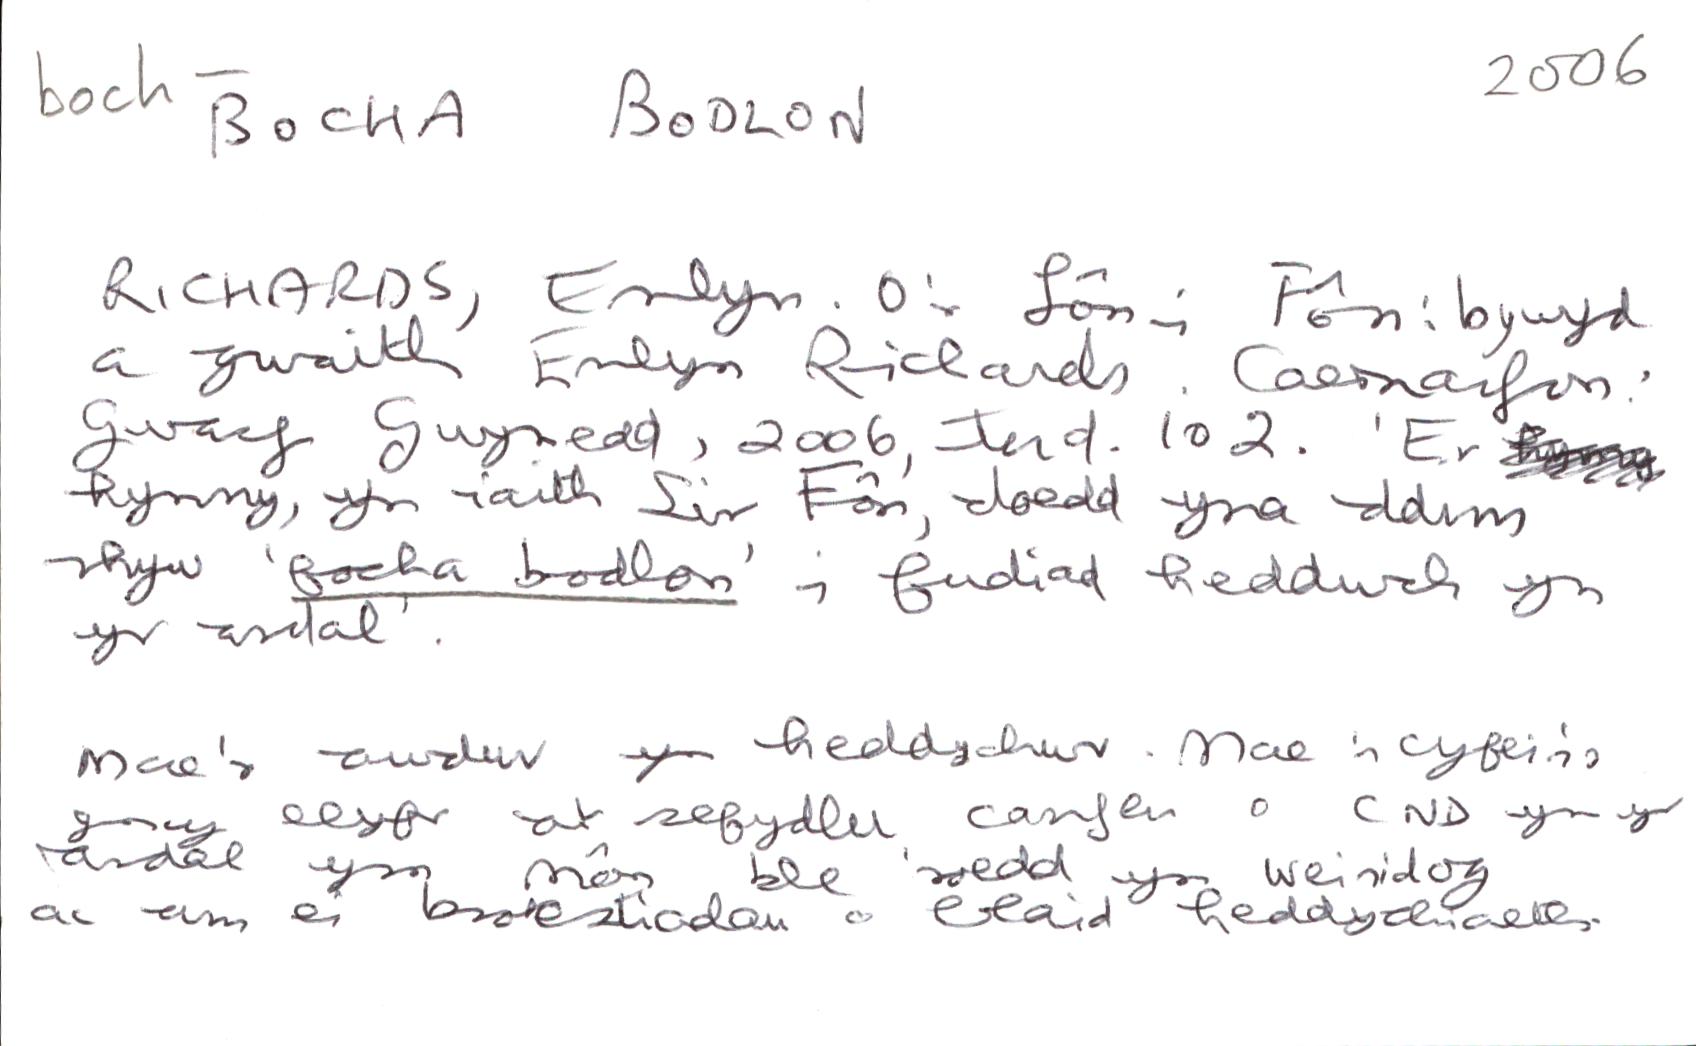 boch BOCHA BODLON 2006
RICHARDS, Emlyn. O'r Lôn i Fôn: bywyd
a gwaith Emlyn Richards. Caernarfon:
Gwasg Gwynedd, 2006, tud. 102. 'Er
hynny, yn iaith Sir Fôn, doedd yna ddim
rhyw 'focha bodlon' i fudiad heddwch yn
yr ardal'.
Mae'r awdur yn heddychwr. Mae'n cyfeirio
yn y llyfr at sefydlu cangen o CND yn yr
ardal ym Môn ble 'roedd yn weinidog
ac am ei brotestiadau o blaid heddychiaeth.